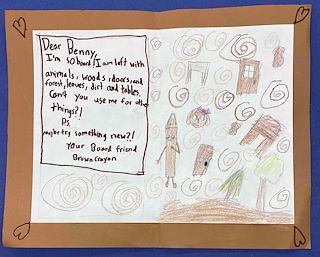 Dear Benny,
I'm so board! I am left with
animals, woods, doors, and
forest, leaves, dirt and tables.
Can't you use me for other
things?!
Ps.
maybe try something new?!
Your Board friend
Brown Crayon